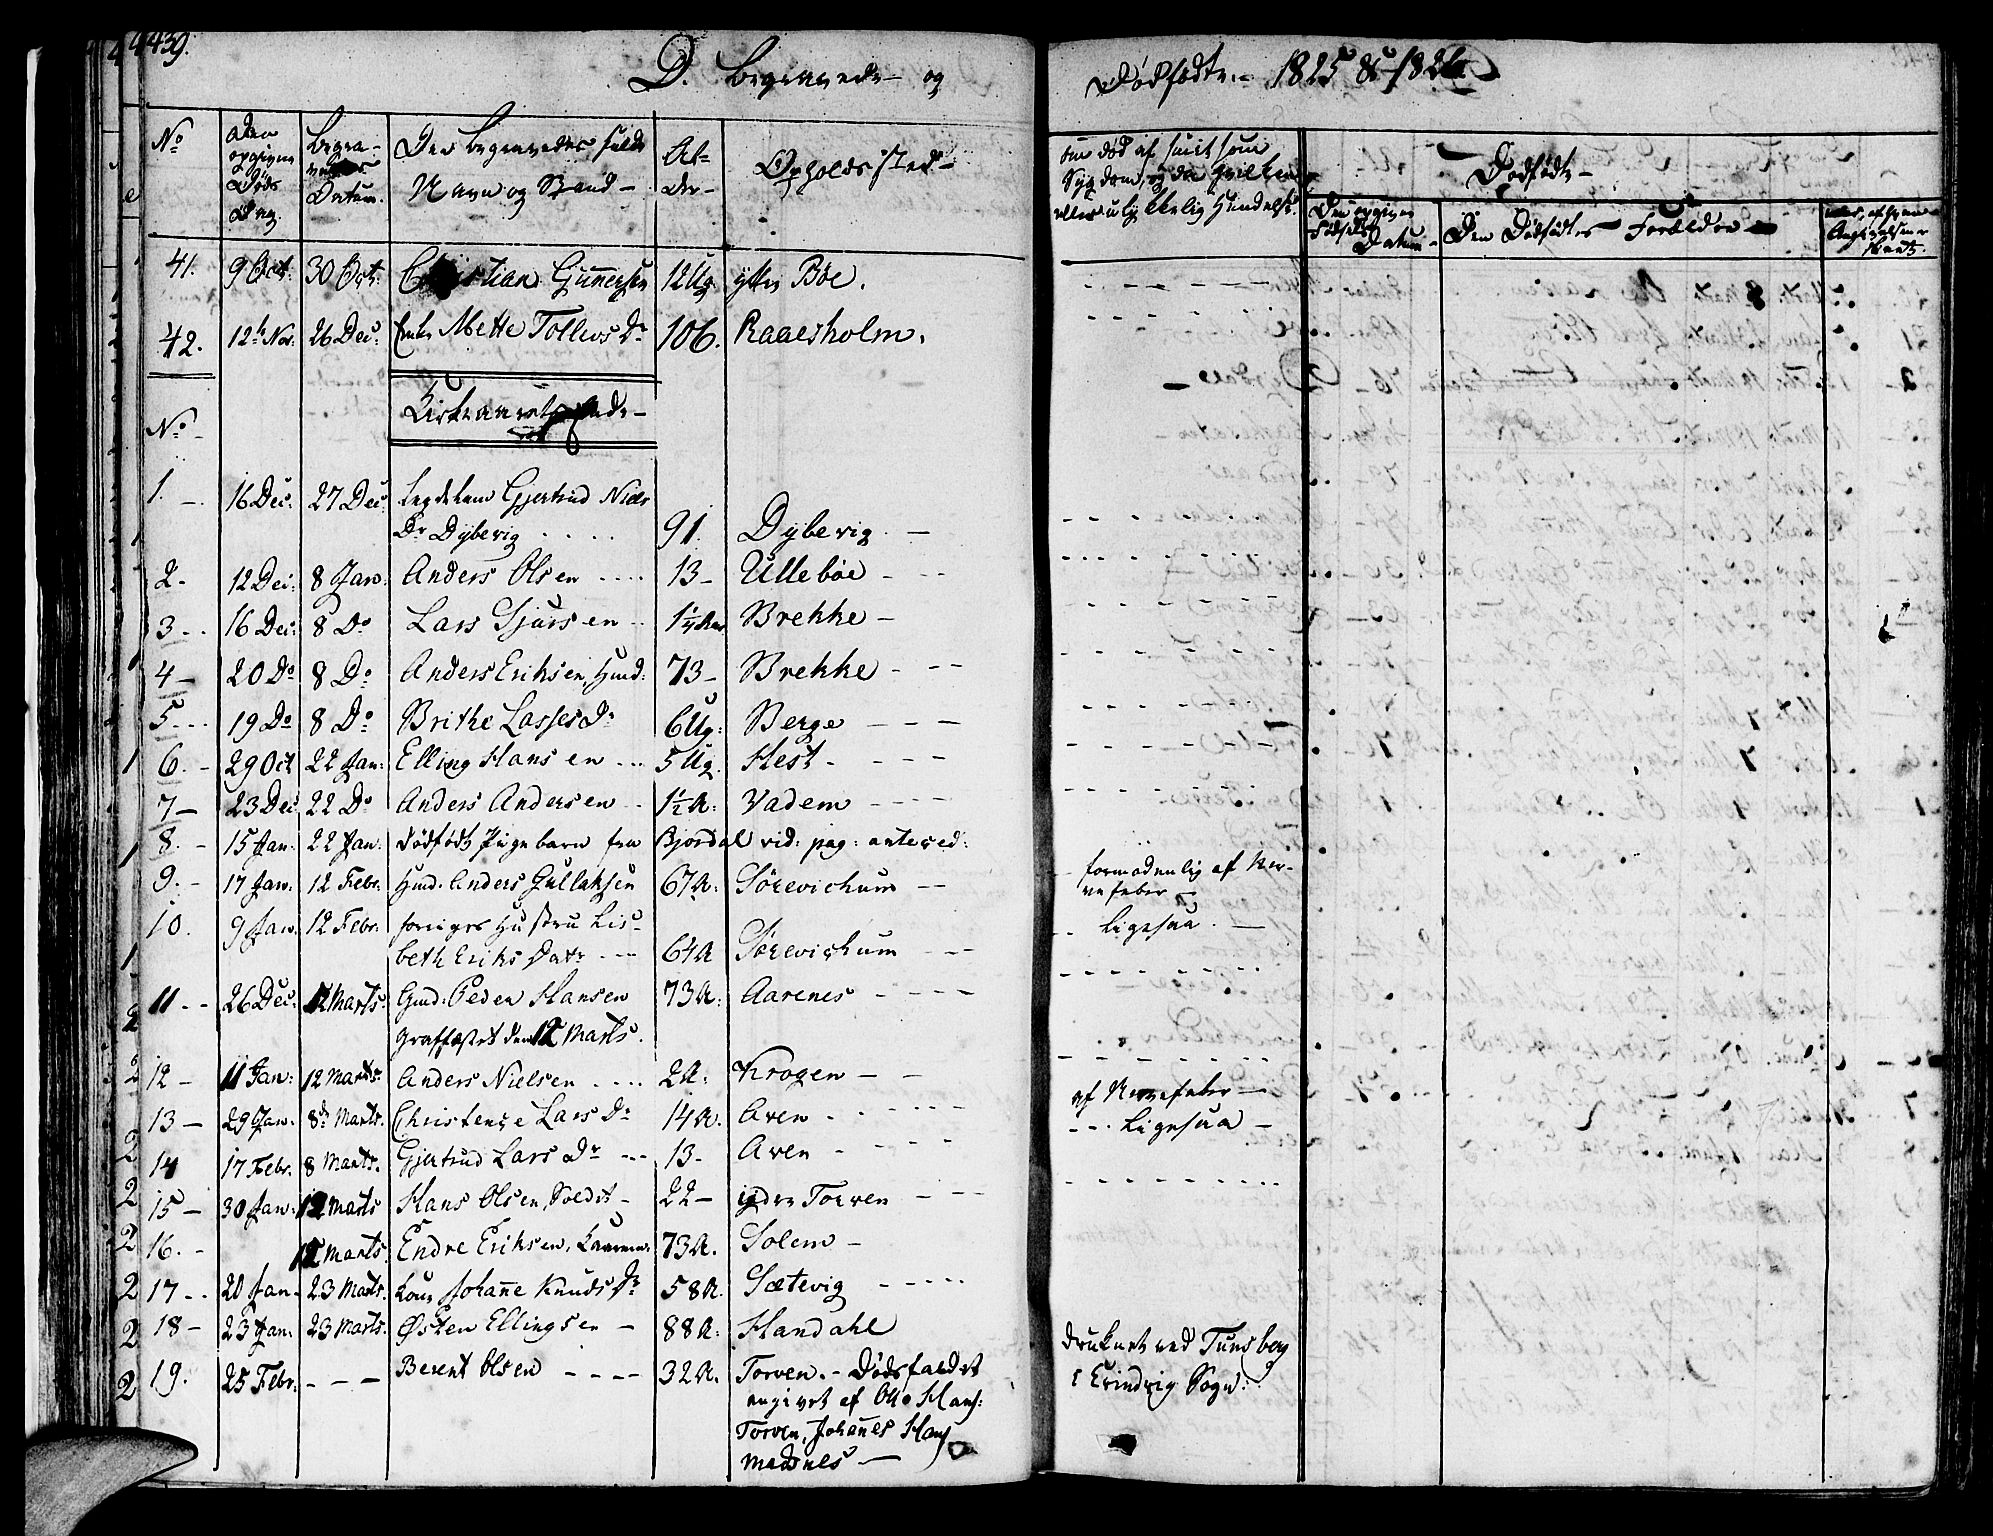 439.
D. Begravede og Dødfødte. 1825 & 1826
No
Den opgivne Døds Dag.
Begravelses Datum.
Den begravedes fulde Navn og Stand
Alder
Opholdssted
om død af smitsom Sygdom, og da hvilken, eller ulykkelig Hendelse.
Dødfødte
Den opgivne Fødsels Datum
Den Dødfødtes Forældre
41. 9 Oct: 30 Oct: Christian Gunnersen 12 Ug: ytter Böe.
42. 12te Nov: 26 Dec: Enke Mette Tollevs Dr 106. Raaesholm.
Kirkeaaret
No
1. 16 Dec: 27 Dec: Legdelem Gjertrud Niels
Dr Dybevig 91. Dybevig
2. 12 Dec: 8 Jan: Anders Olsen 13 Ullebøe
3. 16 Dec: 8 Do Lars Sjursen 1¼ Aar Brekke
4 20 Do 8 Do Anders Eriksen, Huusd: 73 Brekke
5 19 Do 8 Do Brithe Lasses Dr 6 Ug: Berge
6. 29 Oct 22 Jan: Elling Hansen 5 Ug. Hest
7 23 Dec 22 Do Anders Andersen 1½ A: Vadem
8. 15 Jan: 22 Jan: dödfödt Pigebarn fra Bjordal vid: pag: antered:
9. 17 Jan: 12 Febr: Huusd. Anders Gullaksen 67 A: Sörevichum formodenlig af Nervefeber
10. 9 Jan: 12 Febr: forriges Hustru Lisbeth
Eriks Datr 64 A Sörevichum Ligesaa.
11 26 Dec: 12 Marts: Gmd: Peder Hansen 73 A: Aarenes
Graffæstet den 12 Marts.
12 11 Jan: 12 Marts: Anders Nielsen 2 A: Krogen
13 29 Jan: 8de Marts. Christense Lars Dr 14 A. Aven af Nervefeber
14 17 Febr. 8 Marts. Gjertrud Lars Dr 13 Aven Ligesaa
15 30 Jan: 12 Marts Hans Olsen, Soldt 22 yder Torven
16. 12 Marts. Endre Eriksen, Kaarm. 73 A. Solem
17 20 Jan 23 Marts. Kone Johanne Knuds Dr 58 A. Sætevig
18 23 Jan: 23 Marts. Østen Ellingsen 88 A: Handahl
19. 25 Febr. Berent Olsen 32 A. Torven. Dödsfaldet druknet ved Tunsberg
angivet af Ole Hans: i Evindvig Sogn:
Torven, Johannes Hans
Madsnes